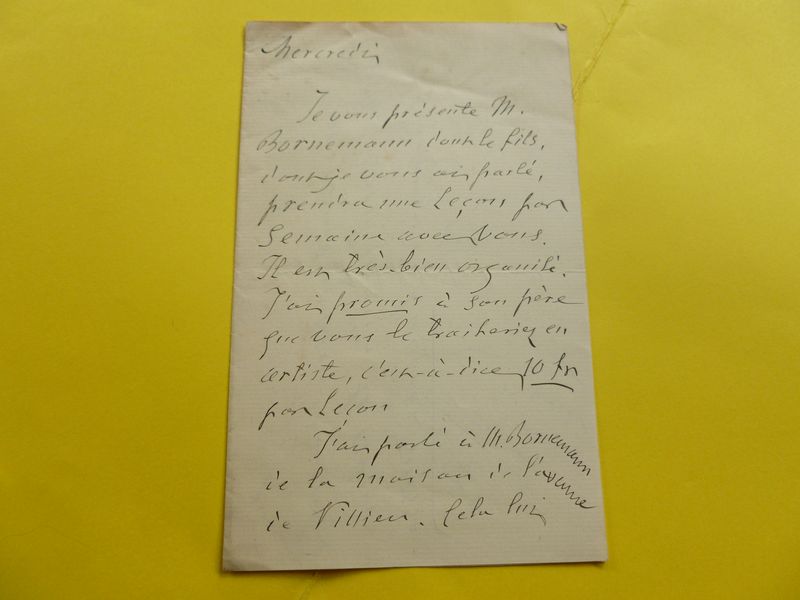 Mercredi
Je vous présente M.
Bornemann dont le fils,
dont je vous ai parlé,
prendra une Leçon par
Semaine avec Vous.
Il est très-bien organisé.
J'ai promis à son père
que vous le traiteriez en
artiste, c'est-à-dire 10 fr
par Leçon
J'ai parlé à M. Bornemann
de la maison de l'avenue
de Villiers. Cela lui